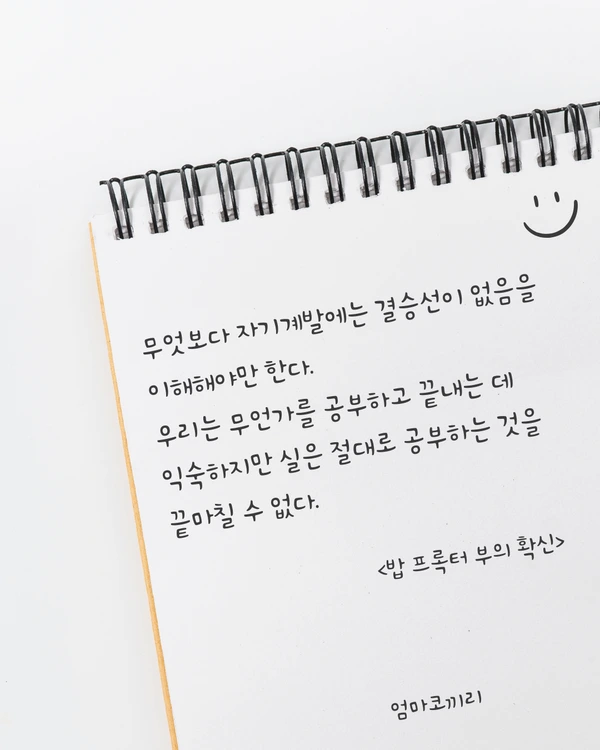 무엇보다 자기계발에는 결승선이 없음을
이해해야만 한다.
우리는 무언가를 공부하고 끝내는 데
익숙하지만 실은 절대로 공부하는 것을
끝마칠 수 없다.
<밥 프록터 부의 확신>
엄마코끼리